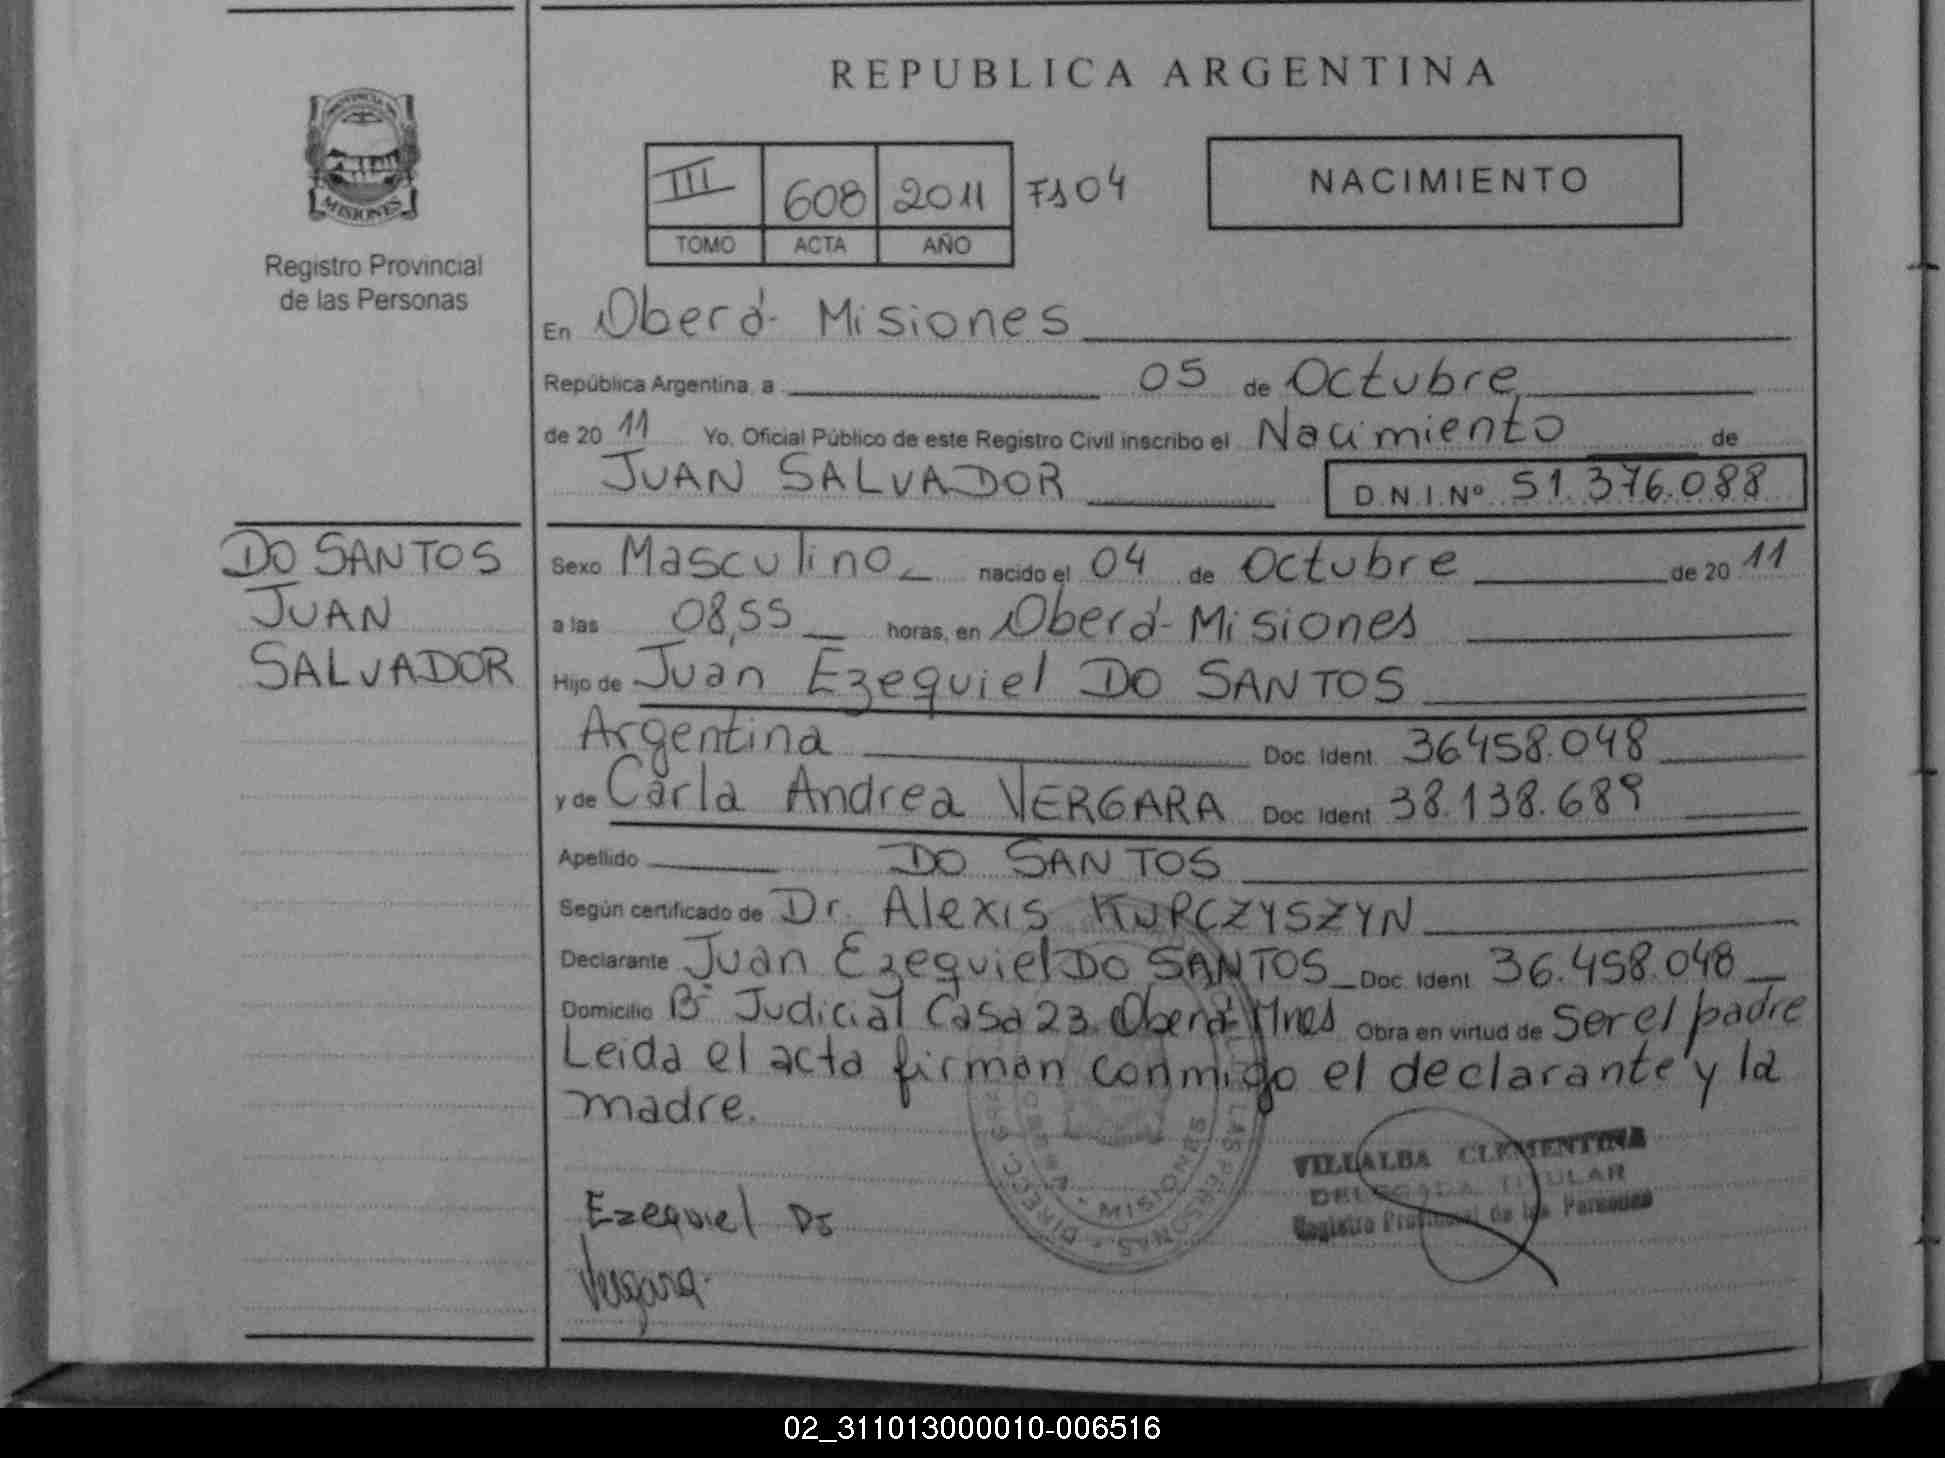 REPUBLICA ARGENTINA
PROVINCIA DE
MISIONES
Registro Provincial
de las Personas
III 608 2011 Fs 04
TOMO ACTA AÑO
NACIMIENTO
En Oberá- Misiones
República Argentina, a 05 de Octubre
de 2011 Yo, Oficial Público de este Registro Civil inscribo el Nacimiento de
JUAN SALVADOR D.N.I.Nº 51.376.088
DO SANTOS
JUAN
SALVADOR
Sexo Masculino nacido el 04 de Octubre de 2011
a las 08,55 horas, en Oberá- Misiones
Hijo de Juan Ezequiel DO SANTOS
Argentina Doc. Ident. 36458.048
y de Carla Andrea VERGARA Doc. Ident. 38.138.689
Apellido DO SANTOS
Según certificado de Dr. Alexis KURCZYSZYN
Declarante Juan Ezequiel DO SANTOS Doc. Ident. 36.458.048
Domicilio Bº Judicial Casa 23. Oberá- Mnes Obra en virtud de Ser el padre
Leida el acta firman conmigo el declarante y la
madre.
VILLALBA CLEMENTINA
DELEGADA TITULAR
Registro Provincial de las Personas
Ezequiel Ds
Vergara.
MISIONES
02_311013000010-006516